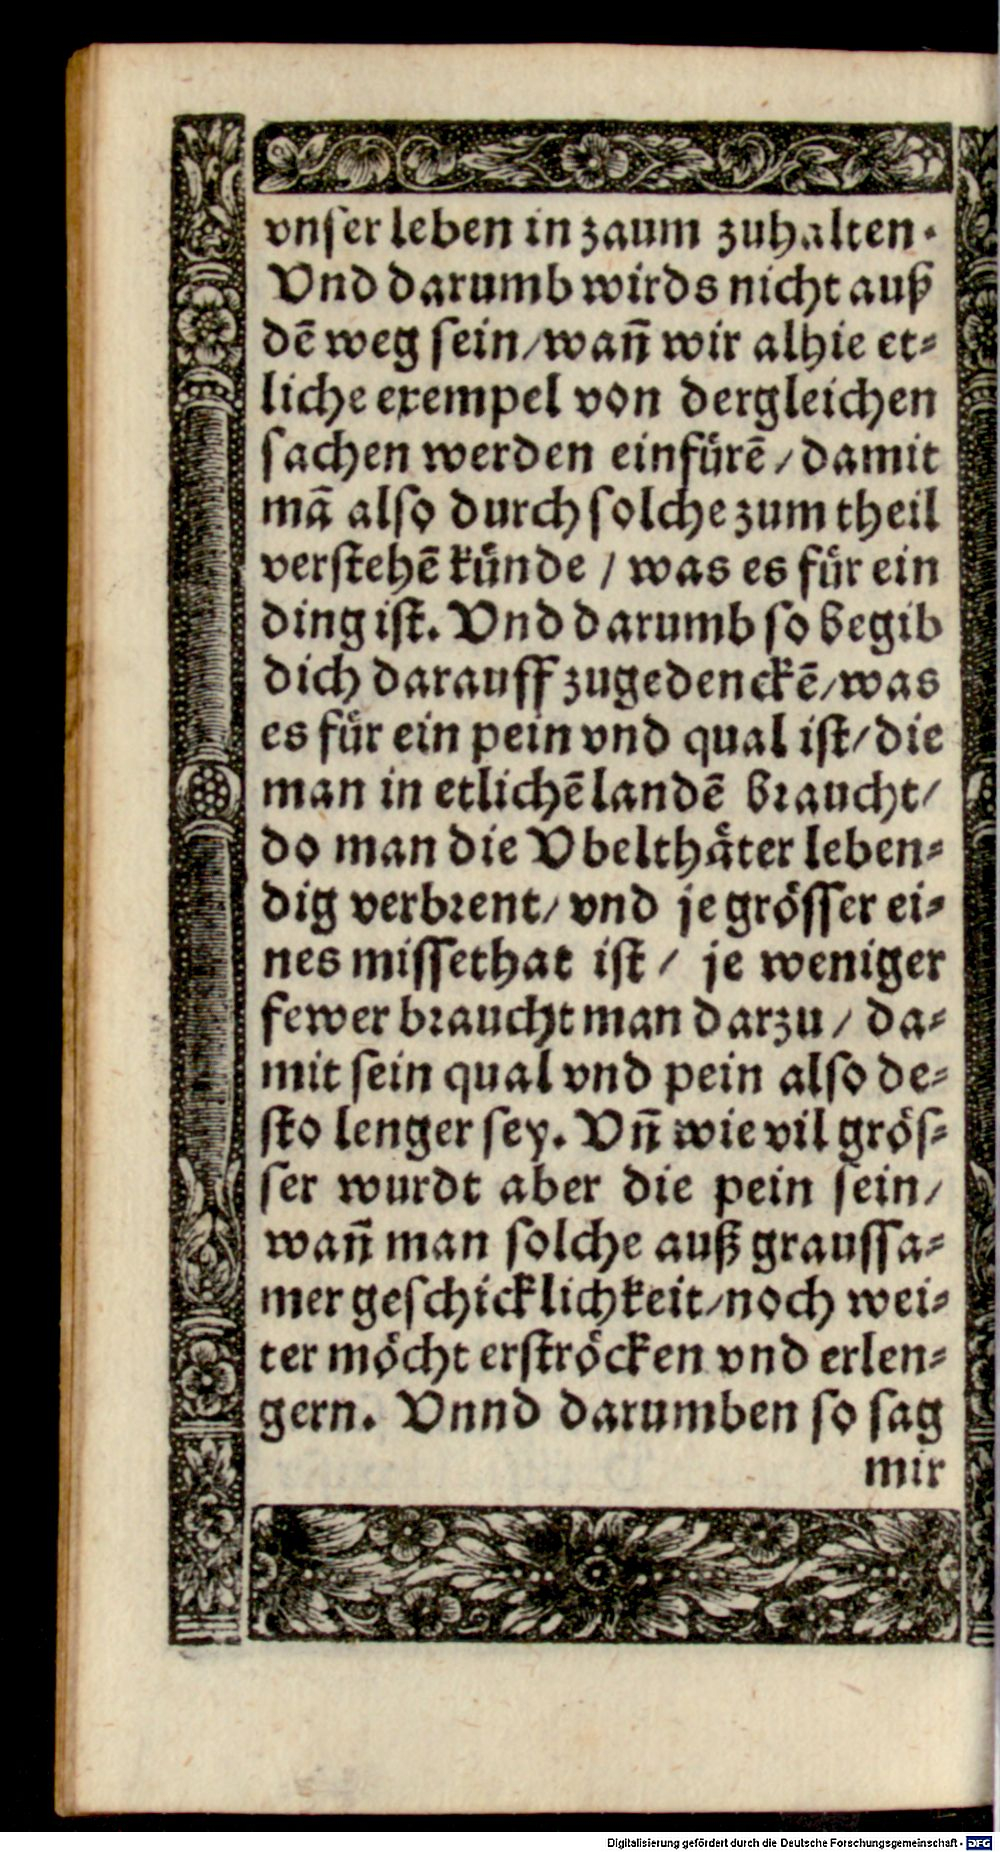 vnser leben in zaum zuhalten.
Vnd darumb wirds nicht auß
dē weg sein/wañ wir alhie et-
liche exempel von dergleichen
sachen werden einfürē/damit
mā also durch solche zum theil
verstehē künde / was es für ein
ding ist. Vnd darumb so begib
dich darauff zugedenckē/was
es für ein pein vnd qual ist/die
man in etlichē landē braucht/
do man die Vbelthäter leben-
dig verbrent/ vnd je grösser ei-
nes missethat ist / je weniger
fewer braucht man darzu / da-
mit sein qual vnd pein also de-
sto lenger sey. Vñ wie vil grös-
ser wurdt aber die pein sein/
wañ man solche auß graussa-
mer geschicklichkeit/noch wei-
ter möcht erströcken vnd erlen-
gern. Vnnd darumben so sag
mir
Digitalisierung gefördert durch die Deutsche Forschungsgemeinschaft - DFG